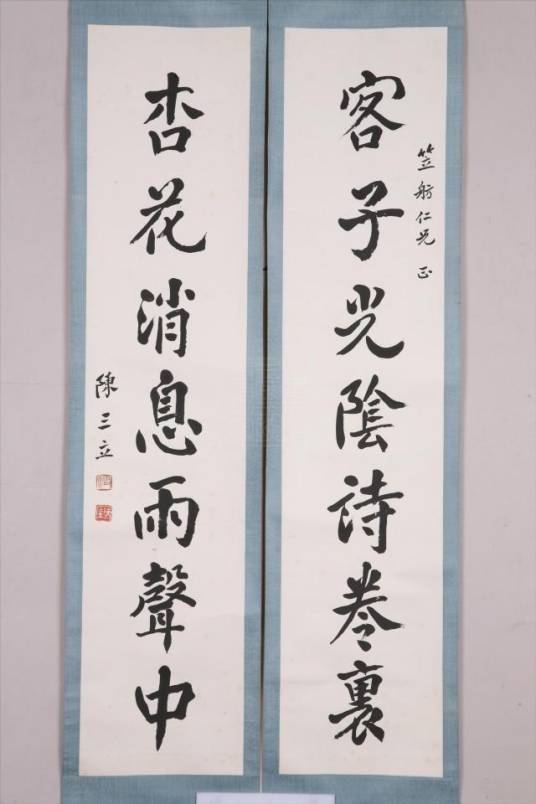 客子光陰詩卷裏
笠舫仁兄 正
杏花消息雨聲中
陳三立